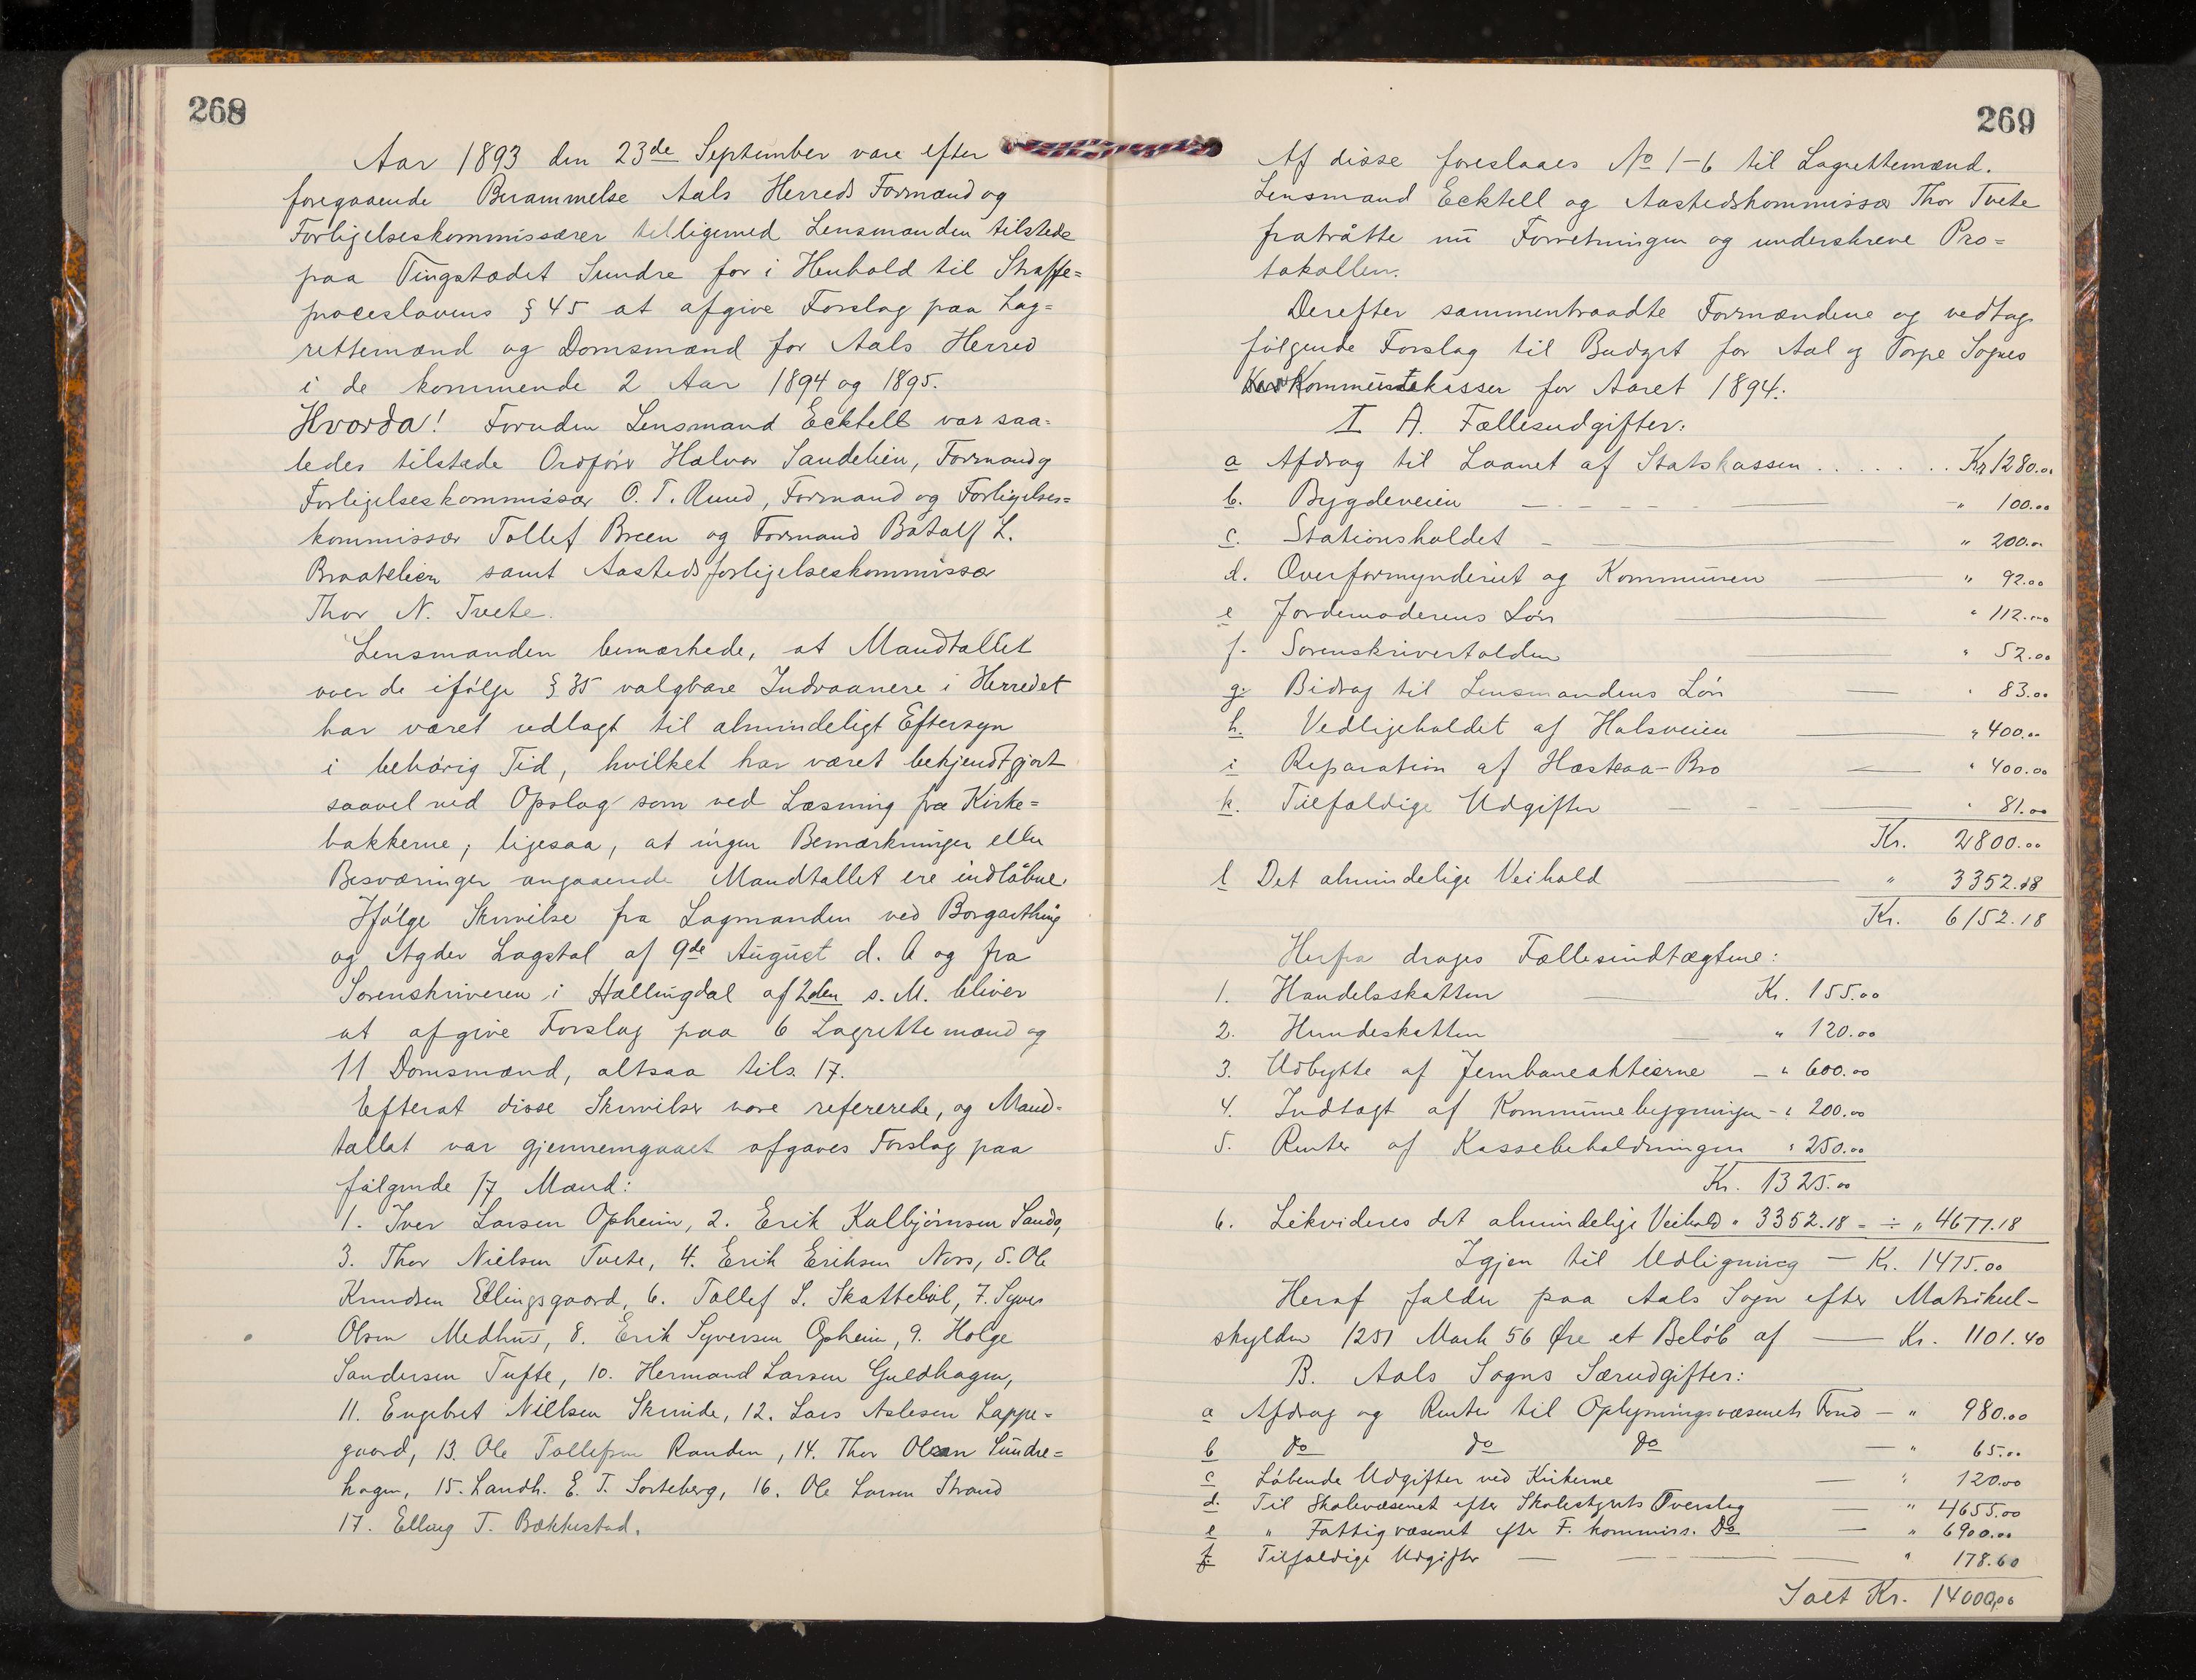 268
Aar 1893 den 23de September vare efter
foregaaende Berammelse Aals Herreds Formænd og
Forligelseskommissærer tilligemed Lensmanden tilstede
paa Tingstedet Sundre for i Henhold til Straffe=
proceslovens § 45 at afgive Forslag paa Lag=
rettemænd og Domsmænd for Aals Herred
i de kommende 2 Aar 1894 og 1895.
Hvorda! Foruden Lensmand Ecktell var saa=
ledes tilstede Ordfører Halvor Sandelien, Formand og
Forligelseskommissær O. T. Ruud, Formand og Forligelses=
kommissær Tollef Breen og Formand Botolf L.
Braatelien samt Aastedsforligelseskommissær
Thor N. Tvete.
Lensmanden bemærkede, at Mandtallet
over de ifølge § 35 valgbare Indvaanere i Herredet
har været udlagt til almindeligt Eftersyn
i behørig Tid, hvilket har været bekjendtgjort
saavel ved Opslag som ved Læsning fra Kirke=
bakkerne; ligesaa, at ingen Bemærkninger eller
Besværinger angaaende Mandtallet ere indløbne.
Ifølge Skrivelse fra Lagmanden ved Borgarthing
og Agder Lagstol af 9de August d. A og fra
Sorenskriveren i Hallingdal af 2den s. M. bliver
at afgive Forslag paa 6 Lagrettemænd og
11 Domsmænd, altsaa tils. 17.
Efterat disse Skrivelser vare refererede, og Mand=
tallet var gjennemgaaet afgaves Forslag paa
følgende 17 Mænd:
1. Iver Larsen Opheim, 2. Erik Kolbjørnsen Sando,
3. Thor Nielsen Tvete, 4. Erik Eriksen Nos, 5. Ole
Knudsen Ellingsgaard, 6. Tollef S. Skattebøl, 7. Syver
Olsen Medhus, 8. Erik Syversen Opheim, 9. Holge
Sandersen Tufte, 10. Hermand Larsen Guldhagen,
11. Engebret Nielsen Skrinde, 12. Lars Aslesen Lappe=
gaard, 13. Ole Tollefsen Randen, 14. Thor Olsen Sundre=
hagen, 15. Landh. E. T. Sorteberg, 16. Ole Larsen Strand
17. Elling T. Bækkestad.
269
Af disse foreslaaes No 1-6 til Lagrettemænd.
Lensmand Ecktell og Aastedskommissær Thor Tvete
fratraatte nu Forretningen og underskreve Pro=
tokollen.
Derefter sammentraadte Formændene og vedtog
følgende Forslag til Budget for Aal og Torpe Sognes
Kommunekasser for Aaret 1894.
I A. Fællesudgifter:
a Afdrag til Laanet af Statskassen . . . . . . . Kr 1280.00
b. Bygdeveien — " 100.00
c. Stationsholdet — " 200.00
d. Overformynderiet og Kommunen — " 92.00
e Jordemoderens Løn — " 112.00
f. Sorenskrivertolden — " 52.00
g. Bidrag til Lensmandens Løn — " 83.00
h. Vedligeholdet af Halsveien — " 400.00
i Reparation af Hæsteaa-Bro — " 400.00
k. Tilfældige Udgifter — " 81.00
Kr. 2800.00
l Det almindelige Veihold — " 3352.18
Kr. 6152.18
Herfra drages Fællesindtægterne:
1. Handelsskatten — Kr. 155.00
2. Hundeskatten — " 120.00
3. Udbytte af Jernbaneaktierne — " 600.00
4. Indtægt af Kommunebygningen - " 200.00
5. Renter af Kassebeholdningen " 250.00
Kr. 1325.00
6. Likvideres det almindelige Veihold " 3352.18 = ÷ " 4677.18
Igjen til Udligning — Kr. 1475.00
Heraf falder paa Aals Sogn efter Matrikul-
skylden 1251 Mark 56 Øre et Beløb af — Kr. 1101.40
B. Aals Sogns Særudgifter:
a Afdrag og Renter til Oplysningsvæsenets Fond — " 980.00
b do do do — " 65.00
c Løbende Udgifter ved Kirkerne — " 120.00
d. Til Skolevæsenet efter Skolestyrets Overslag — " 4655.00
e " Fattigvæsenet efter F. kommiss. Do — " 6900.00
f Tilfældige Udgifter — " 178.60
Ialt Kr. 14000,00